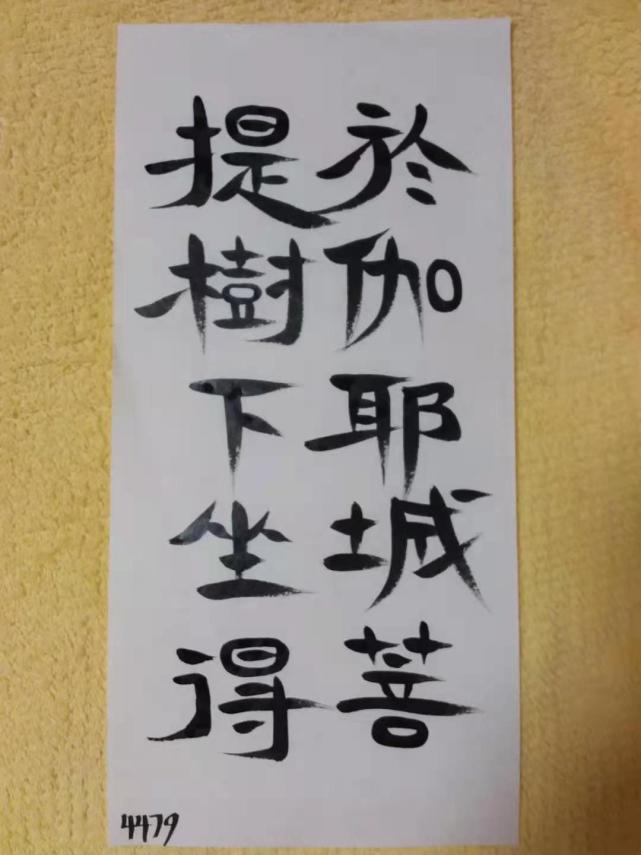 於伽耶城菩
提樹下坐得
4479